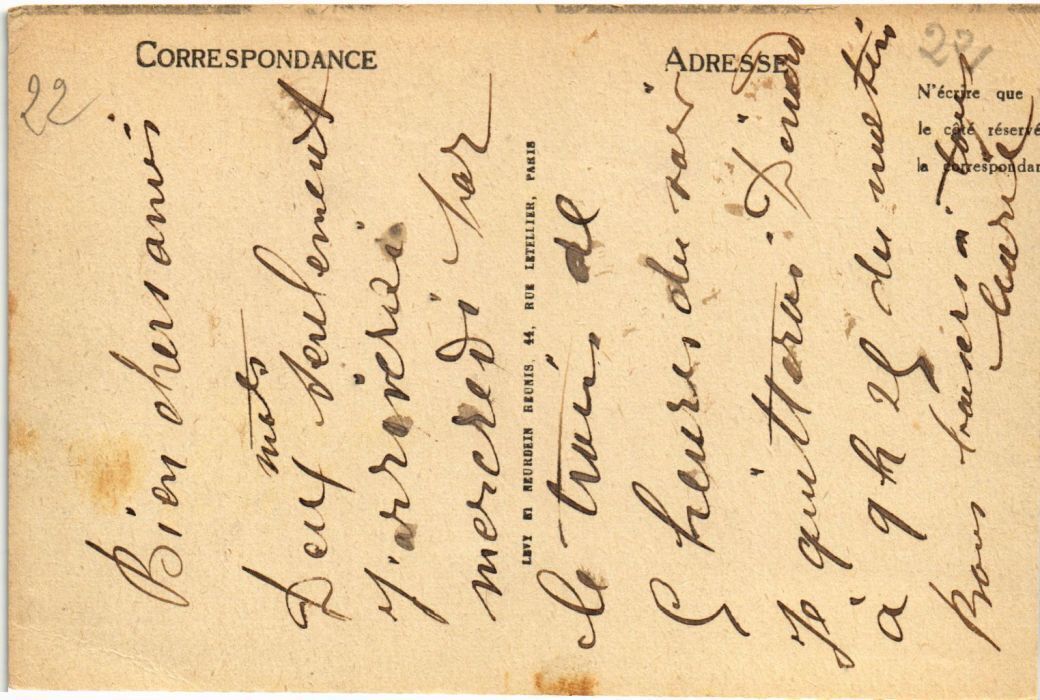 CORRESPONDANCE
ADRESSE
N'écrire que
le côté réservé
la correspondan
LEVY ET NEURDEIN REUNIS, 44, RUE LETELLIER, PARIS
22
221
Bien chers amis
mots
Deux seulement
J'arriverai
mercredi par
le train de
5 heures du soir
Je quitterai Dinard
à 9h 25 du matin
Bons baisers à tous
Marie